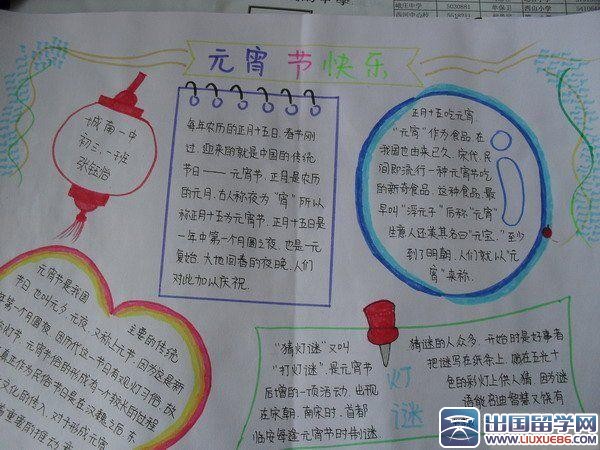 峨庄中学 5030881
西河中心校 5518231
西山小学
元宵节快乐
城南一中
初三.一班
每年农历的正月十五日.春节刚
过,迎来的就是中国的传统
节日——元宵节.正月是农历
的元月,古人称夜为“宵”所以
称正月十五为元宵节.正月十五日是
一年中第一个月圆之夜,也是一元
复始,大地回春的夜晚,人们
对此加以庆祝.
正月十五吃元宵.
“元宵”作为食品,在
我国也由来已久.宋代,民
间即流行一种元宵节吃
的新奇食品.这种食品,最
早叫“浮元子”后称“元宵”
生意人还美其名曰“元宝.”至少
到了明朝,人们就以“元
宵”来称.
元宵节是我国 主要的传统
节日,也叫元夕,元夜,又称上元节,因为这是新
年第一个月圆夜.因历代这一节日有观灯习俗,故
灯节.元宵节俗的形成有一个较长的过程
真正作为民俗节日是在汉魏之后.东
文化的传入,对于形成元宵
重要的推动意
“猜灯谜”又叫
“打灯谜”.是元宵节
后增的一项活动,出现
在宋朝.南宋时,首都
临安每逢元宵节时制谜
灯
谜
猜谜的人众多.开始时是好事者
把谜写在纸条上,贴在五光十
色的彩灯上供人猜.因为谜
语能启迪智慧又饶有
出国留学网
WWW.LIUXUE86.COM